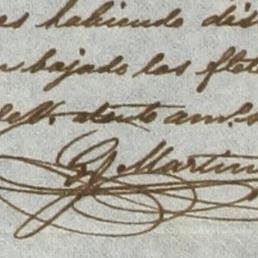 es habiendo dis
bajado las flete
atento am.
G Martin